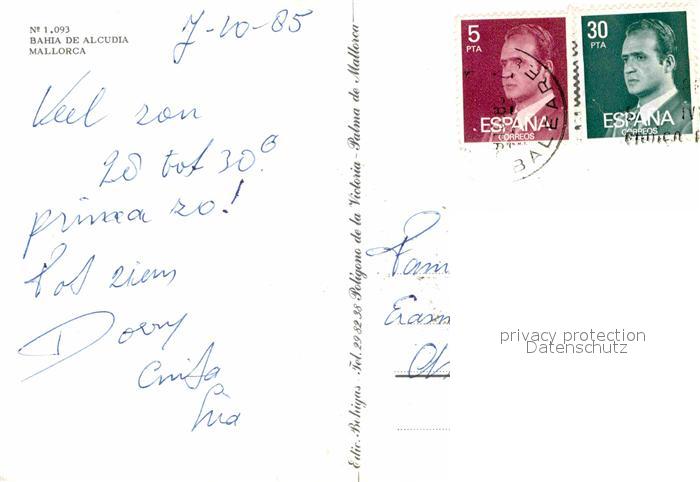 Nº 1.093
BAHIA DE ALCUDIA
MALLORCA
7-10-85
Veel zon
28 tot 30°
prima zo!
Tot ziens
Dorry
Anita
Ria
Edic. Bohigas - Tel. 29 82 38 Polígono de la Victoria - Palma de Mallorca
5
PTA
ESPAÑA
CORREOS
30
PTA
ESPAÑA
CORREOS
BALEARE
Fam
Eras
privacy protection
Datenschutz